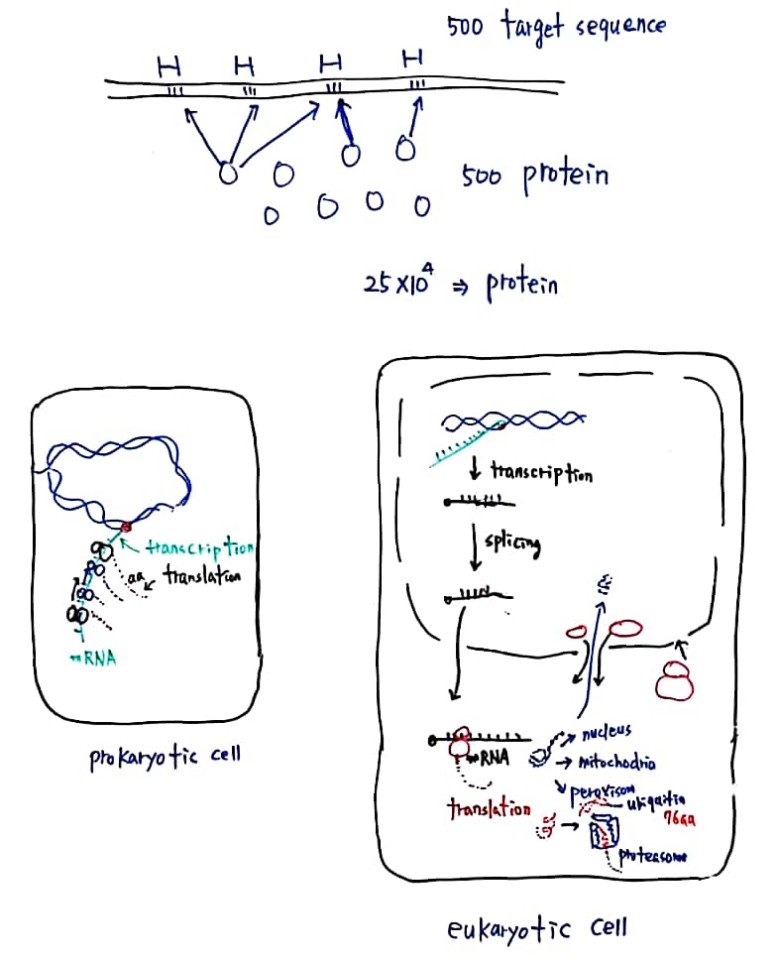 500 target sequence
H H H H
500 protein
25×10⁴ ⇒ protein
transcription
aa translation
mRNA
prokaryotic cell
transcription
splicing
mRNA
translation
nucleus
mitochodria
peroxisom
ubiquitin
76aa
proteasome
eukaryotic cell